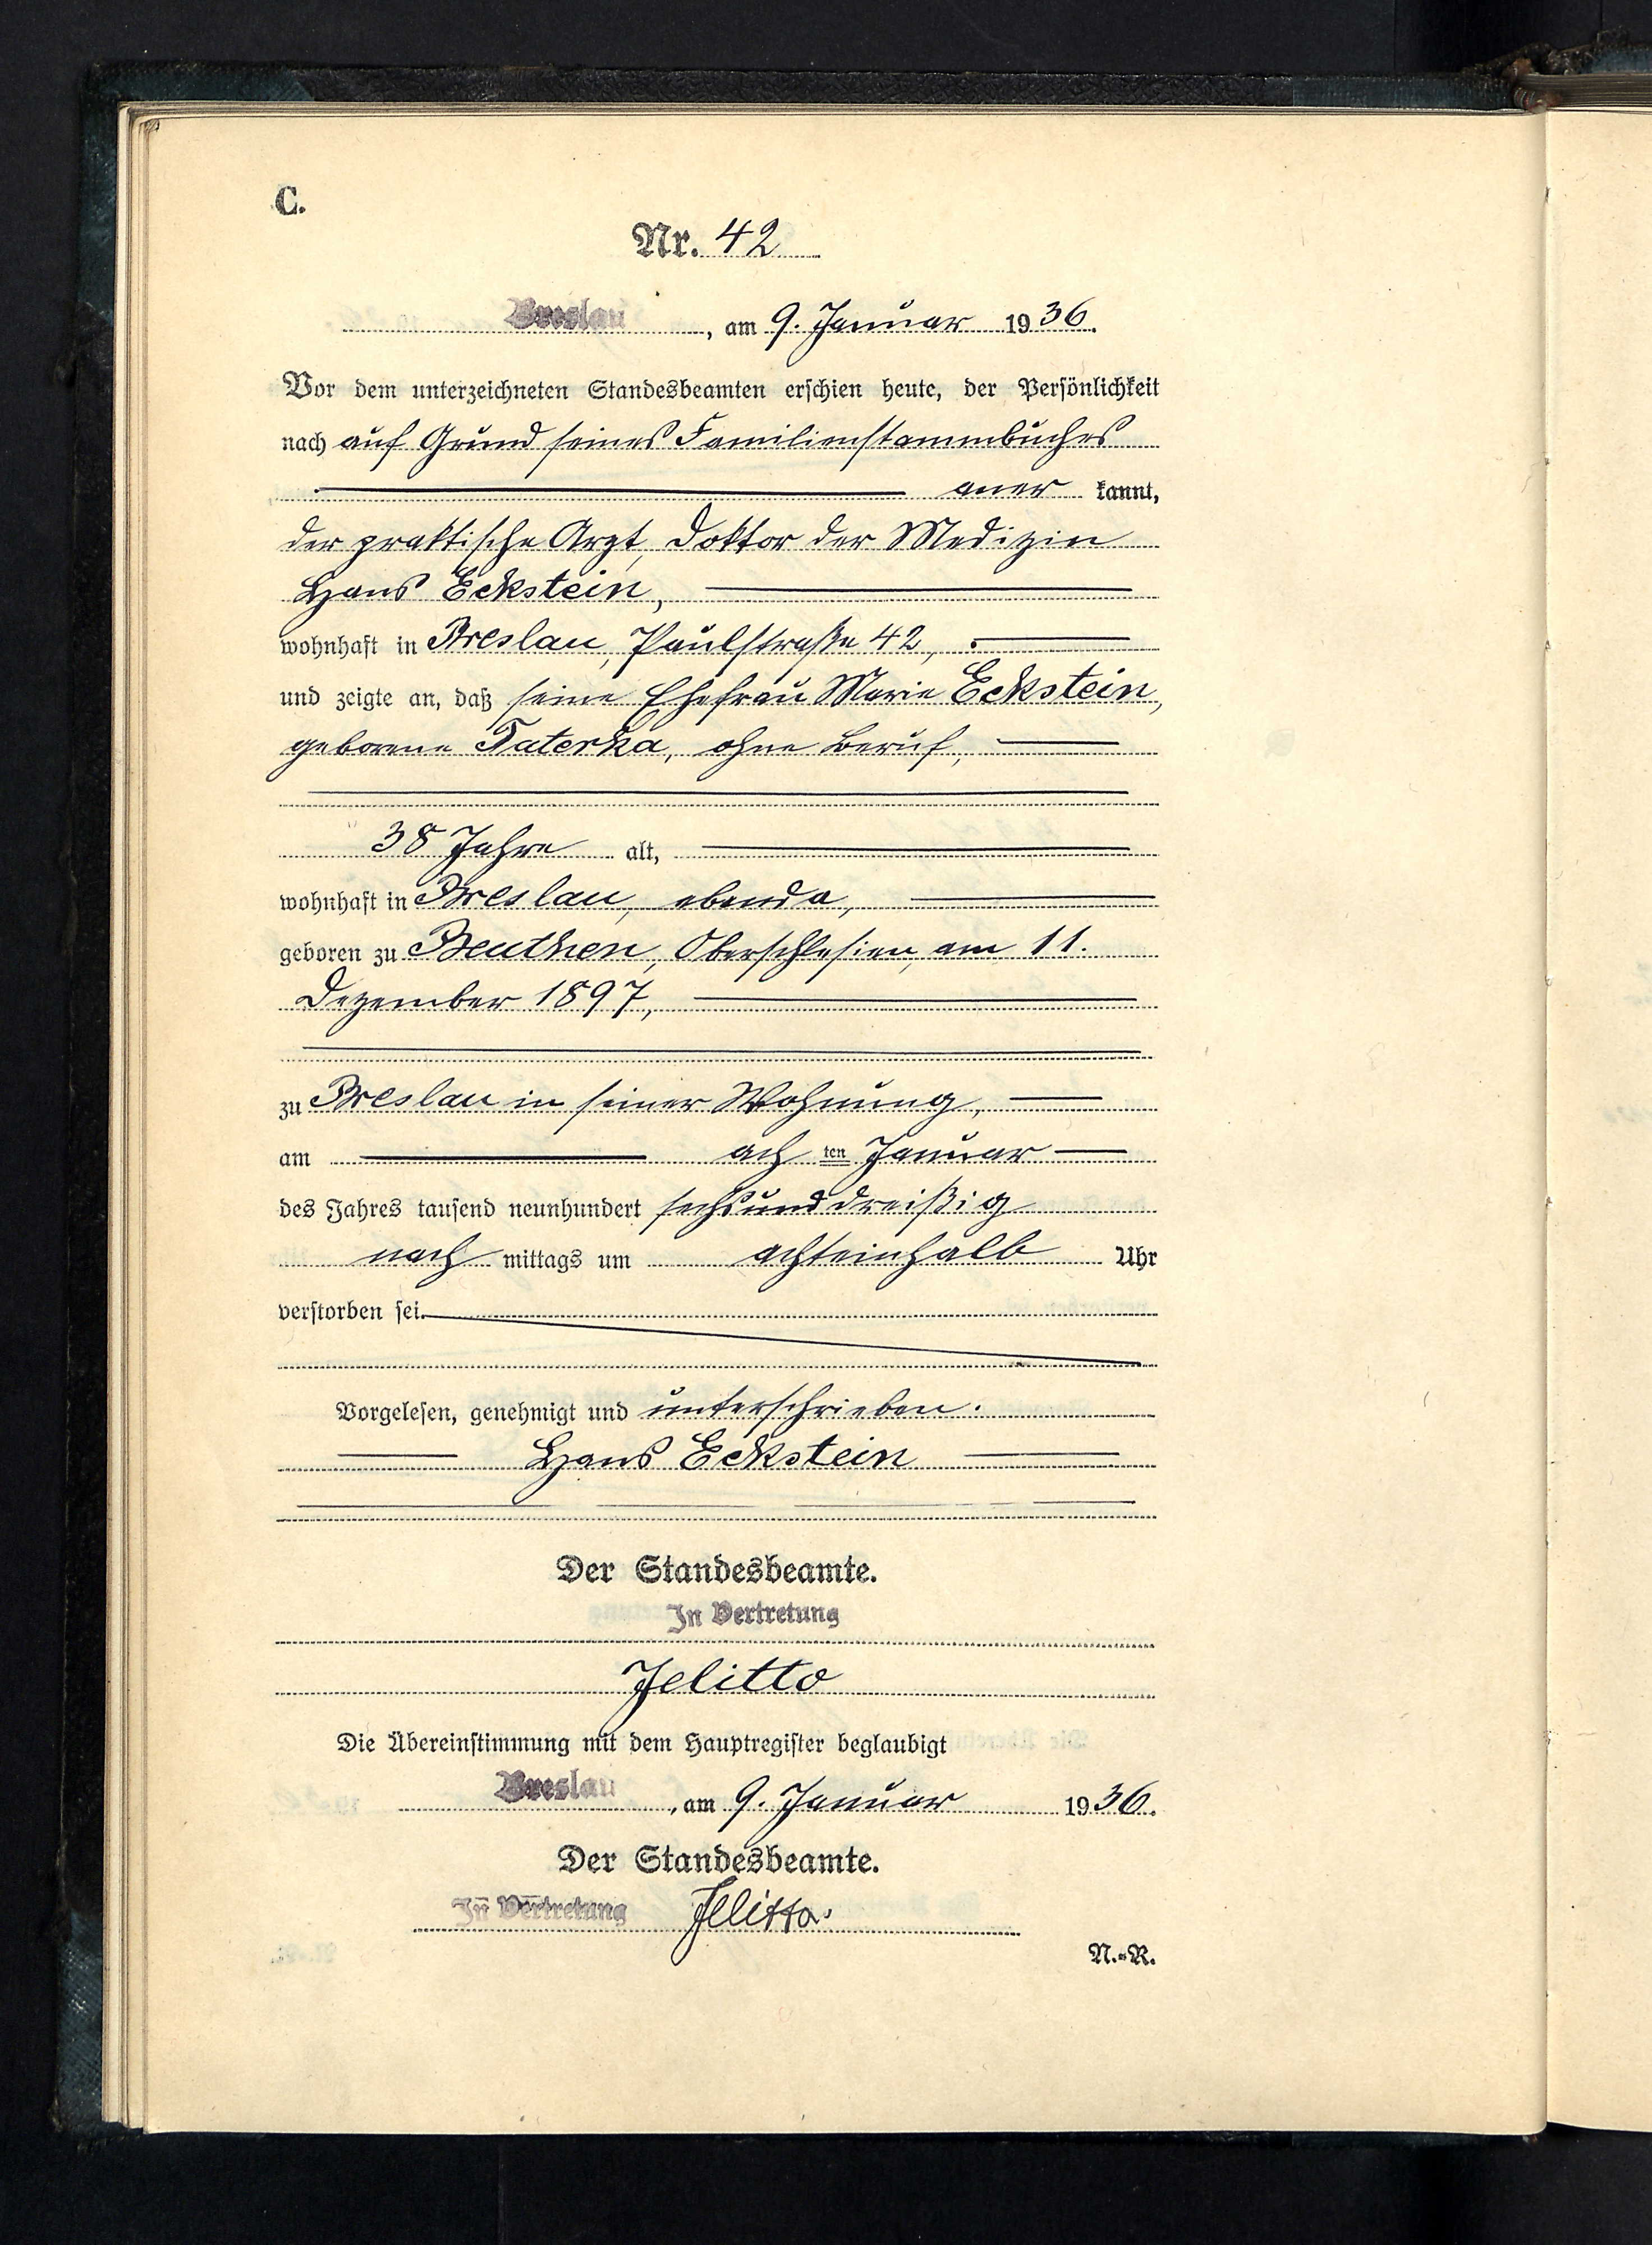 C.
Nr. 42
Breslau, am 9. Januar 1936.
Vor dem unterzeichneten Standesbeamten erschien heute, der Persönlichkeit
nach auf Grund seines Familienstammbuches
aner kannt,
der praktische Arzt, Doktor der Medizin
Hans Eckstein,
wohnhaft in Breslau, Paulstraße 42,
und zeigte an, daß seine Ehefrau Marie Eckstein,
geborene Taterka, ohne Beruf,
38 Jahre alt,
wohnhaft in Breslau, ebenda,
geboren zu Beuthen, Oberschlesien, am 11.
Dezember 1897,
zu Breslau in seiner Wohnung,
am ach ten Januar
des Jahres tausend neunhundert sechsunddreißig
nach mittags um achteinhalb Uhr
verstorben sei.
Vorgelesen, genehmigt und unterschrieben.
Hans Eckstein
Der Standesbeamte.
In Vertretung
Jelitto
Die Übereinstimmung mit dem Hauptregister beglaubigt
Breslau, am 9. Januar 1936.
Der Standesbeamte.
In Vertretung Jelitto.
N.-R.